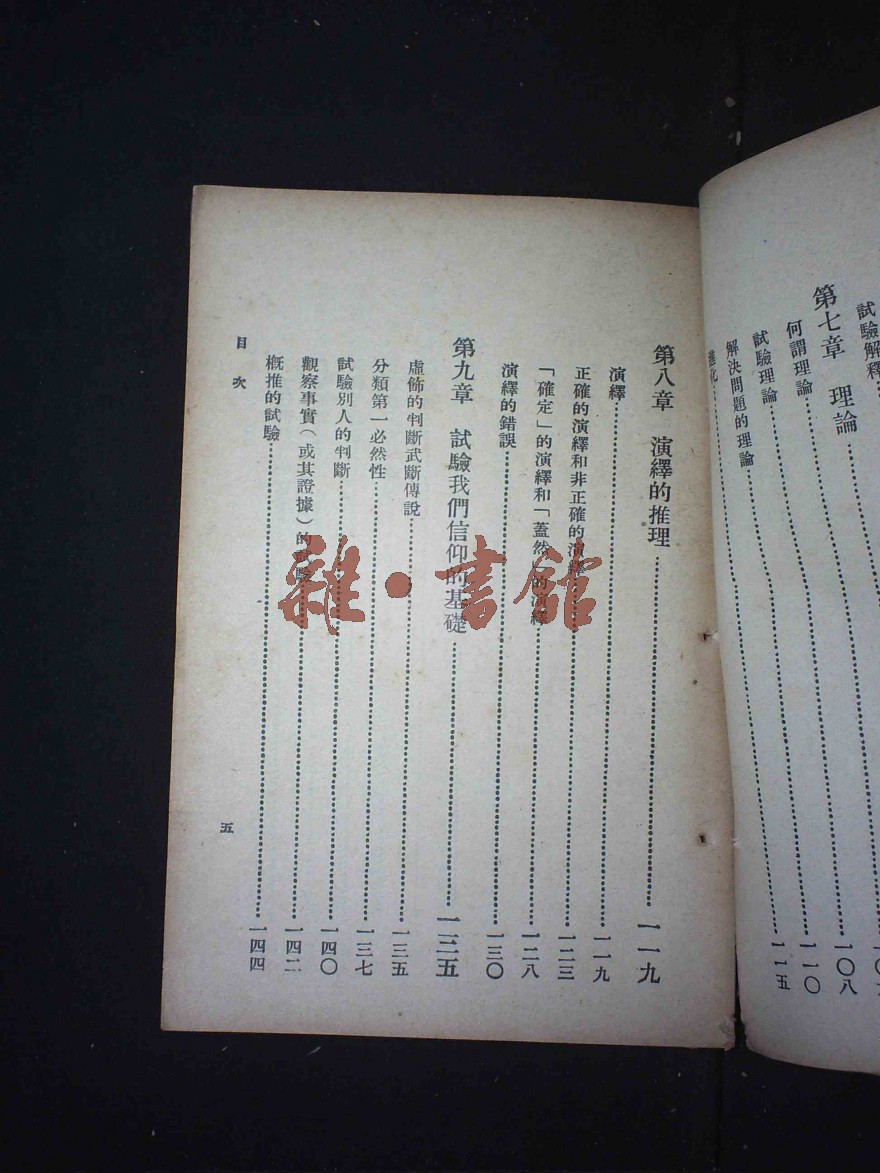 試驗解釋
第七章 理論
何謂理論……一〇八
試驗理論……一一〇
解決問題的理論……一一五
第八章 演繹的推理……一一九
演繹……一一九
正確的演繹和非正確的演繹……一二三
「確定」的演繹和「蓋然」的演繹……一二八
演繹的錯誤……一三〇
第九章 試驗我們信仰的基礎……一三五
虛佈的判斷武斷傳說……一三五
分類第一必然性……一三七
試驗別人的判斷……一四〇
觀察事實(或其證據)的試驗……一四二
概推的試驗……一四四
目次
五
雜·書館